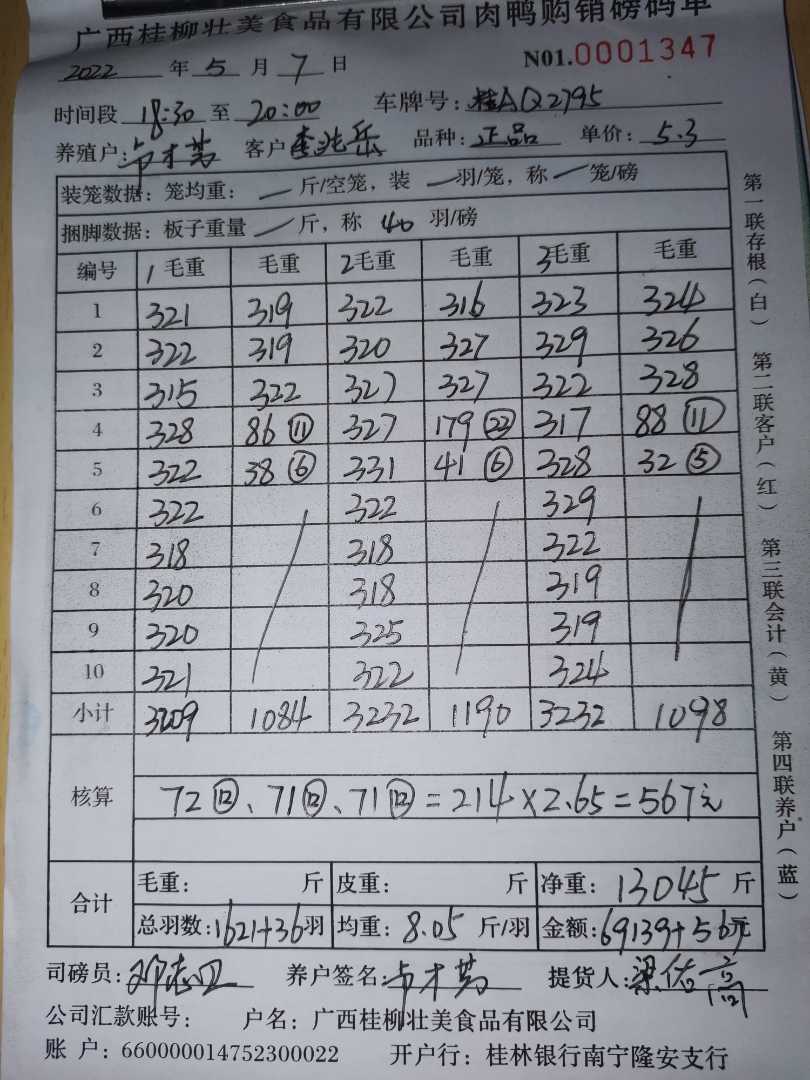 广西桂柳壮美食品有限公司肉鸭购销磅码单
2022 年 5 月 7 日 N01.0001347
时间段 18:30 至 20:00 车牌号: 桂AQ2795
养殖户: 卢才 客户 李兆岳 品种: 正品 单价: 5.3
装笼数据: 笼均重: 一 斤/空笼, 装 一 羽/笼, 称 一 笼/磅
捆脚数据: 板子重量 一 斤, 称 40 羽/磅
编号 1 毛重 毛重 2 毛重 毛重 3 毛重 毛重
1 321 319 322 316 323 324
2 322 319 320 327 329 326
3 315 322 327 327 322 328
4 328 86 ⑪ 327 179 ㉒ 317 88 ⑪
5 322 38 ⑥ 331 41 ⑥ 328 32 ⑤
6 322 322 329
7 318 318 322
8 320 318 319
9 320 325 319
10 321 322 324
小计 3209 1084 3232 1190 3232 1098
核算 72⑫、71⑫、71⑫=214×2.65=567元
合计 毛重: 斤 皮重: 斤 净重: 13045 斤
总羽数: 1621+36 羽 均重: 8.05 斤/羽 金额: 69139+567元
司磅员: 邓志卫 养户签名: 卢才 提货人: 梁佑高
公司汇款账号: 户名: 广西桂柳壮美食品有限公司
账 户: 660000014752300022 开户行: 桂林银行南宁隆安支行
第一联存根(白) 第二联客户(红) 第三联会计(黄) 第四联养户(蓝)